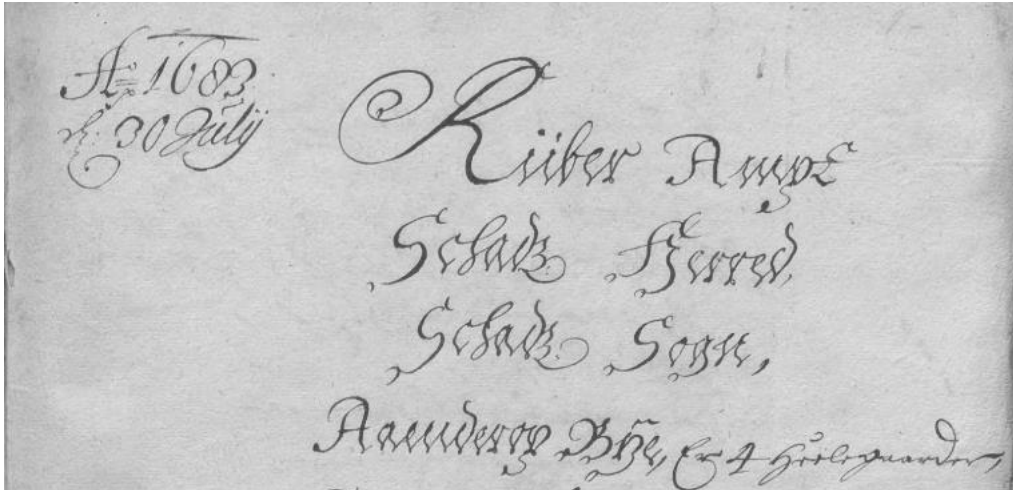 Ao 1683
d. 30 Julij
Riiber Ampt
Schadz Herred
Schadz Sogn,
Aamderop Bÿe, Er 4 Heelegaarder,